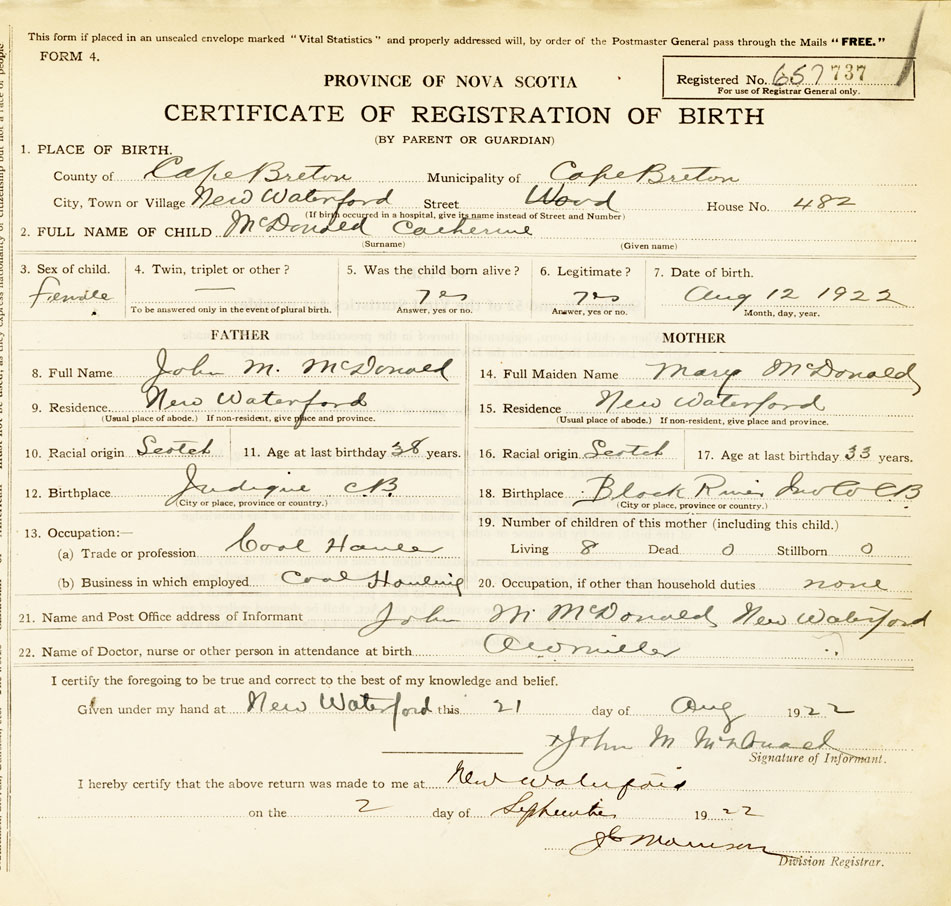 This form if placed in an unsealed envelope marked "Vital Statistics" and properly addressed will, by order of the Postmaster General pass through the Mails "FREE."
FORM 4.
PROVINCE OF NOVA SCOTIA
Registered No. 657 737
For use of Registrar General only.
CERTIFICATE OF REGISTRATION OF BIRTH
(BY PARENT OR GUARDIAN)
1. PLACE OF BIRTH.
County of Cape Breton Municipality of Cape Breton
City, Town or Village New Waterford Street Wood House No. 482
(If birth occurred in a hospital, give its name instead of Street and Number)
2. FULL NAME OF CHILD McDonald Catherine
(Surname) (Given name)
3. Sex of child. 4. Twin, triplet or other? 5. Was the child born alive? 6. Legitimate? 7. Date of birth.
Female — yes yes Aug 12 1922
To be answered only in the event of plural birth. Answer, yes or no. Answer, yes or no. Month, day, year.
FATHER MOTHER
8. Full Name John M. McDonald 14. Full Maiden Name Mary McDonald
9. Residence. New Waterford 15. Residence New Waterford
(Usual place of abode.) If non-resident, give place and province. (Usual place of abode.) If non-resident, give place and province.
10. Racial origin Scotch 11. Age at last birthday 38 years. 16. Racial origin Scotch 17. Age at last birthday 33 years.
12. Birthplace Judique C.B. 18. Birthplace Black River Inv Co CB
(City or place, province or country.) (City or place, province or country.)
19. Number of children of this mother (including this child.)
13. Occupation:—
(a) Trade or profession Coal Hauler Living 8 Dead 0 Stillborn 0
(b) Business in which employed Coal Hauling 20. Occupation, if other than household duties none
21. Name and Post Office address of Informant John M McDonald New Waterford
22. Name of Doctor, nurse or other person in attendance at birth
I certify the foregoing to be true and correct to the best of my knowledge and belief.
Given under my hand at New Waterford this 21 day of Aug 1922
x John M McDonald
Signature of Informant.
I hereby certify that the above return was made to me at New Waterford
on the 2 day of September 1922
Morrison
Division Registrar.